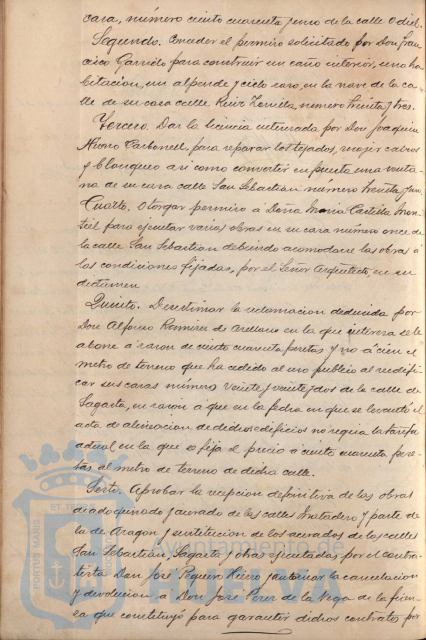 casa, número ciento cuarenta y uno de la calle Odiel.
Segundo. Conceder el permiso solicitado por Don Fran
cisco Garrido para construir un caño interior, una ha
bitacion, un alpende y cielo raso, en la nave de la ca
lle de su casa calle Ruiz Zorrilla, número treinta y tres.
Tercero. Dar la licencia interesada por Don Joaquin
Carbonell, para reparar los tejados, cojer calvos
y blanqueo asi como convertir en puerta una venta
na de su casa calle San Sebastian número treinta y uno
Cuarto. Otorgar permiso á Doña Maria Castilla Mon
tiel para ejecutar varias obras en su casa número once de
la calle San Sebastian debiendo acomodarse las obras á
las condiciones fijadas, por el Señor Arquitecto, en su
dictamen
Quinto. Desestimar la reclamacion deducida por
Don Alfonso Ramirez de Arellano en la que interesa se le
abone á razon de ciento cuarenta pesetas y no á cien el
metro de terreno que ha cedido al uso publico al reedifi
car sus casas número veinte y veinte y dos de la calle de
Sagasta, en razon á que en la fecha en que se levantó el
acta de alineacion de dichos edificios no regia la tarifa
actual en la que se fija el precio á ciento cuarenta pese
tas al metro de terreno de dicha calle.
Sesto. Aprobar la recepcion definitiva de las obras
de adoquinado y acerado de las calles Matadero y parte de
la de Aragon y sustitucion de los acerados de las calles
San Sebastian, Sagasta y otras ejecutadas por el contra
tista Don José Peguero y autorizar la cancelacion
y devolucion á Don José Perez de la Vega de la fian
za que constituyó para garantir dichos contratos por
PORTUS MARIS
Ayuntamiento de
HUELVA